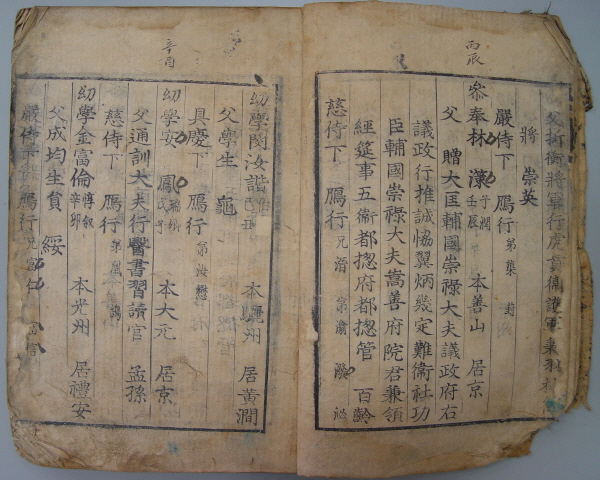 丙辰
父折衝將軍行虎賁衛護軍
將 崇英
嚴侍下 鴈行 弟葉 封
參奉林 濙 子潤 壬辰 本善山 居京
父 贈大匡輔國崇祿大夫議政府右
議政行推誠協翼炳幾定難衛社功
臣輔國崇祿大夫嵩善府院君兼領
經筵事五衛都摠府都摠管 百齡
慈侍下 鴈行 兄湑 弟渝
辛酉
幼學閔汝諧 本驪州 居黃澗
父學生 龜
具慶下 鴈行 弟汝懋
幼學安 鳳 本大元 居京
父通訓大夫行醫書習讀官 孟孫
慈侍下 鴈行 弟鸞 鵠
幼學金富倫 惇叙 辛卯 本光州 居禮安
父成均生員 綏
嚴侍下 鴈行 兄富仁